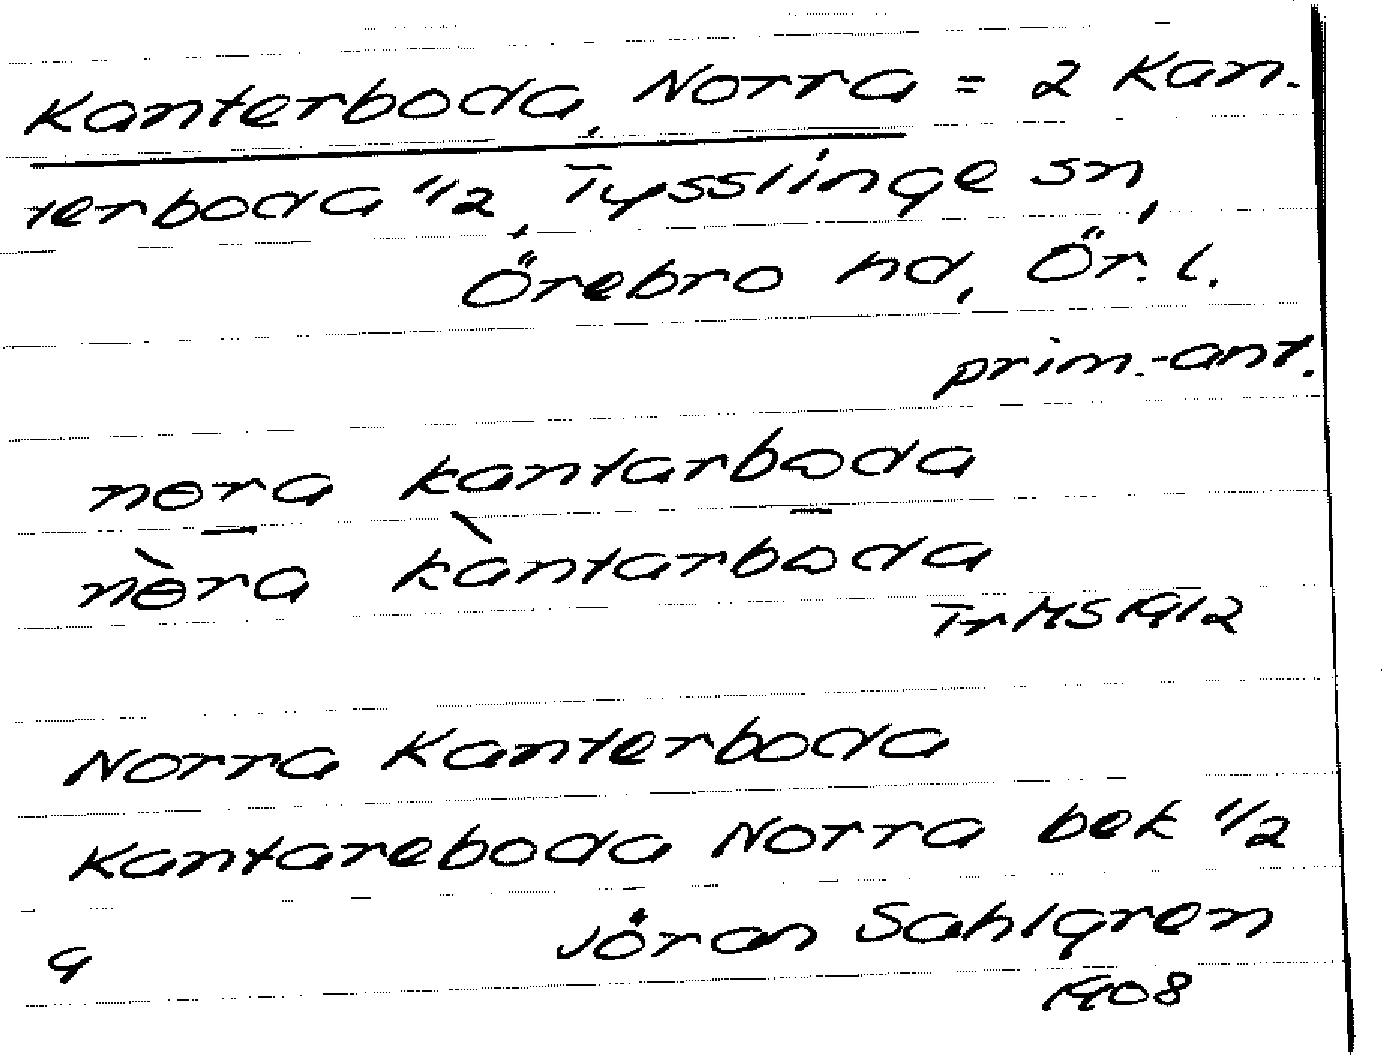 Kanterboda, Norra = 2 Kan-
terboda 1/2, Tysslinge sn,
Örebro hd, Ör. l.
prim.-ant.
nɵra kantarboda
nɵ̀ra kàntarboda
Tr MS 1912
Norra Kanterboda
Kantareboda Norra bek 1/2
G Jöran Sahlgren
1908